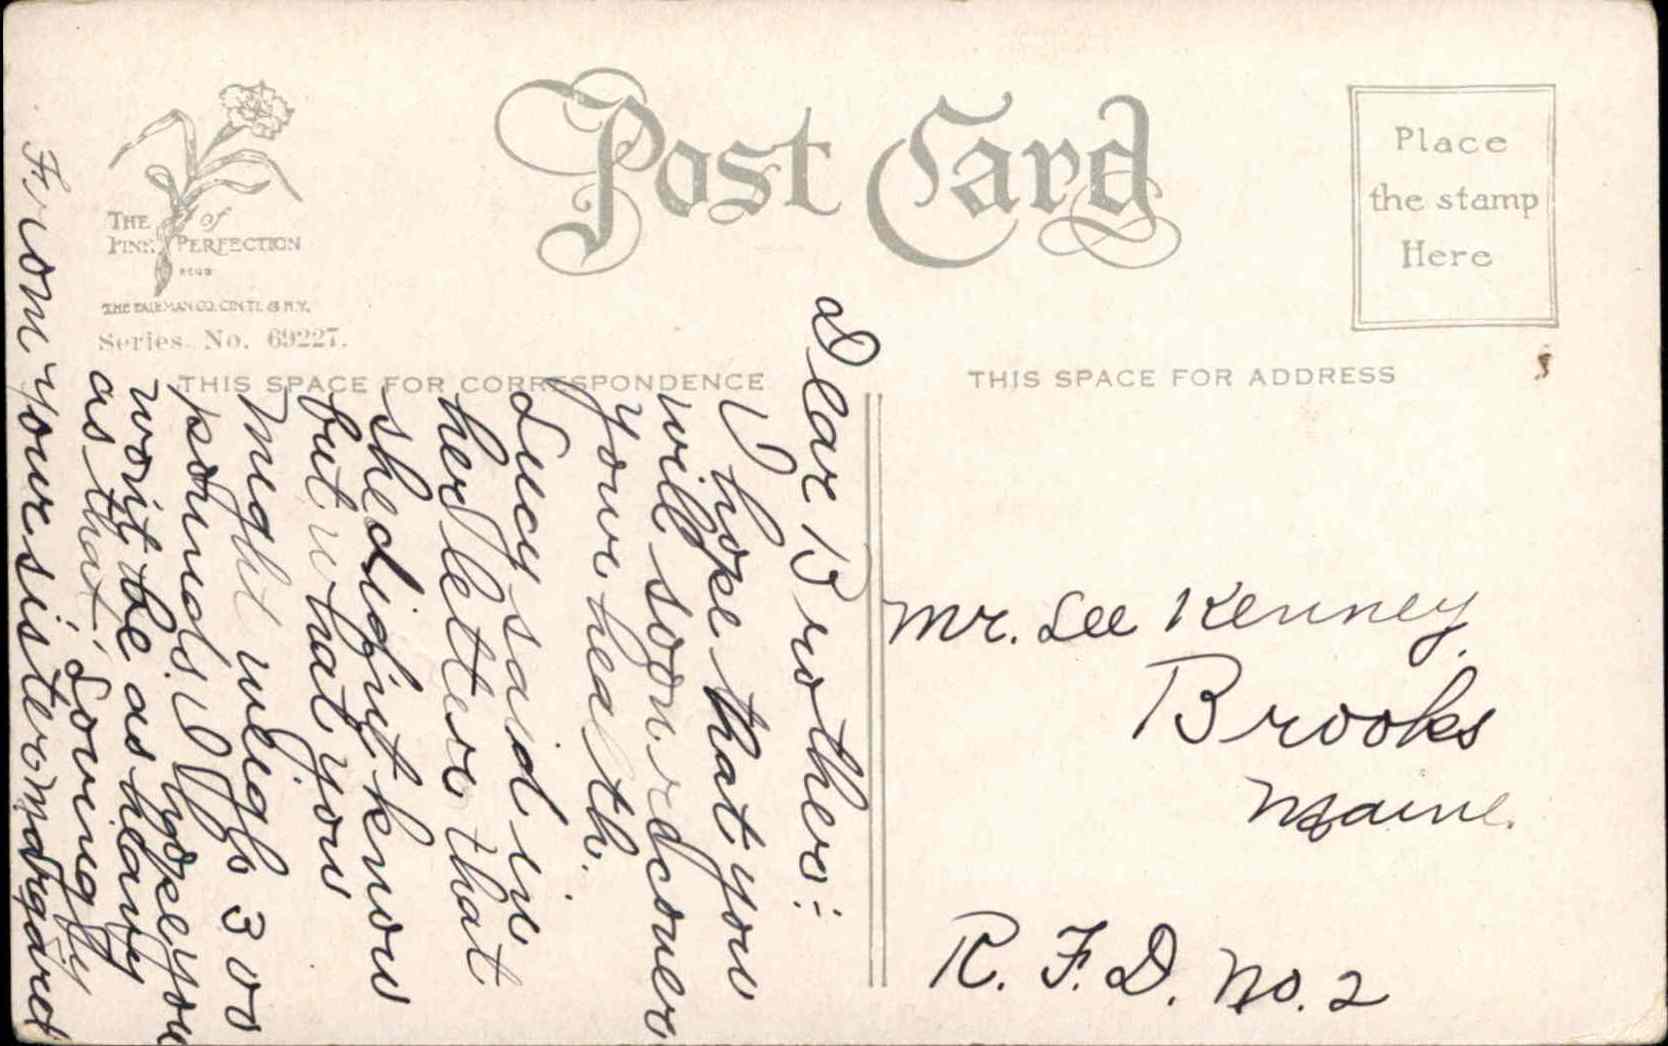 Post Card
Place
the stamp
Here
THE of
PINK PERFECTION
THE FAIRMAN CO. CIN'TI. & N.Y.
Series No. 69227.
THIS SPACE FOR CORRESPONDENCE
THIS SPACE FOR ADDRESS
Dear Brother:
I hope that you
will soon rdcouer
your health.
Lucy said in
her letter that
she didn't know
but what you
might weigh 300
pounds. I hope you
wont be as heavy
as that. Lovingly
From your sister Margaret
Mr. Lee Kenney,
Brooks
Maine.
R. F. D. No. 2